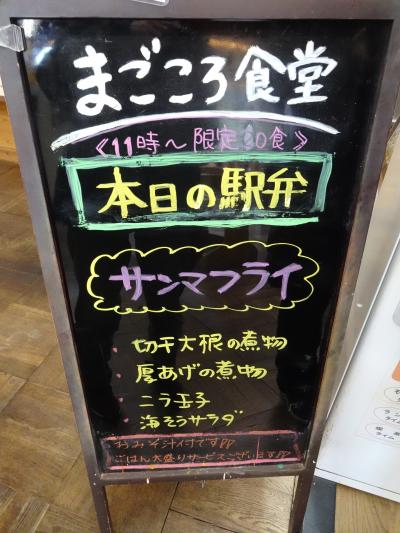 まごころ食堂
《11時～限定30食》
本日の駅弁
サンマフライ
・切干大根の煮物
・厚あげの煮物
・ニラ玉子
・海そうサラダ
おみそ汁付です♪♪
ごはん大盛りサービスございます♪♪